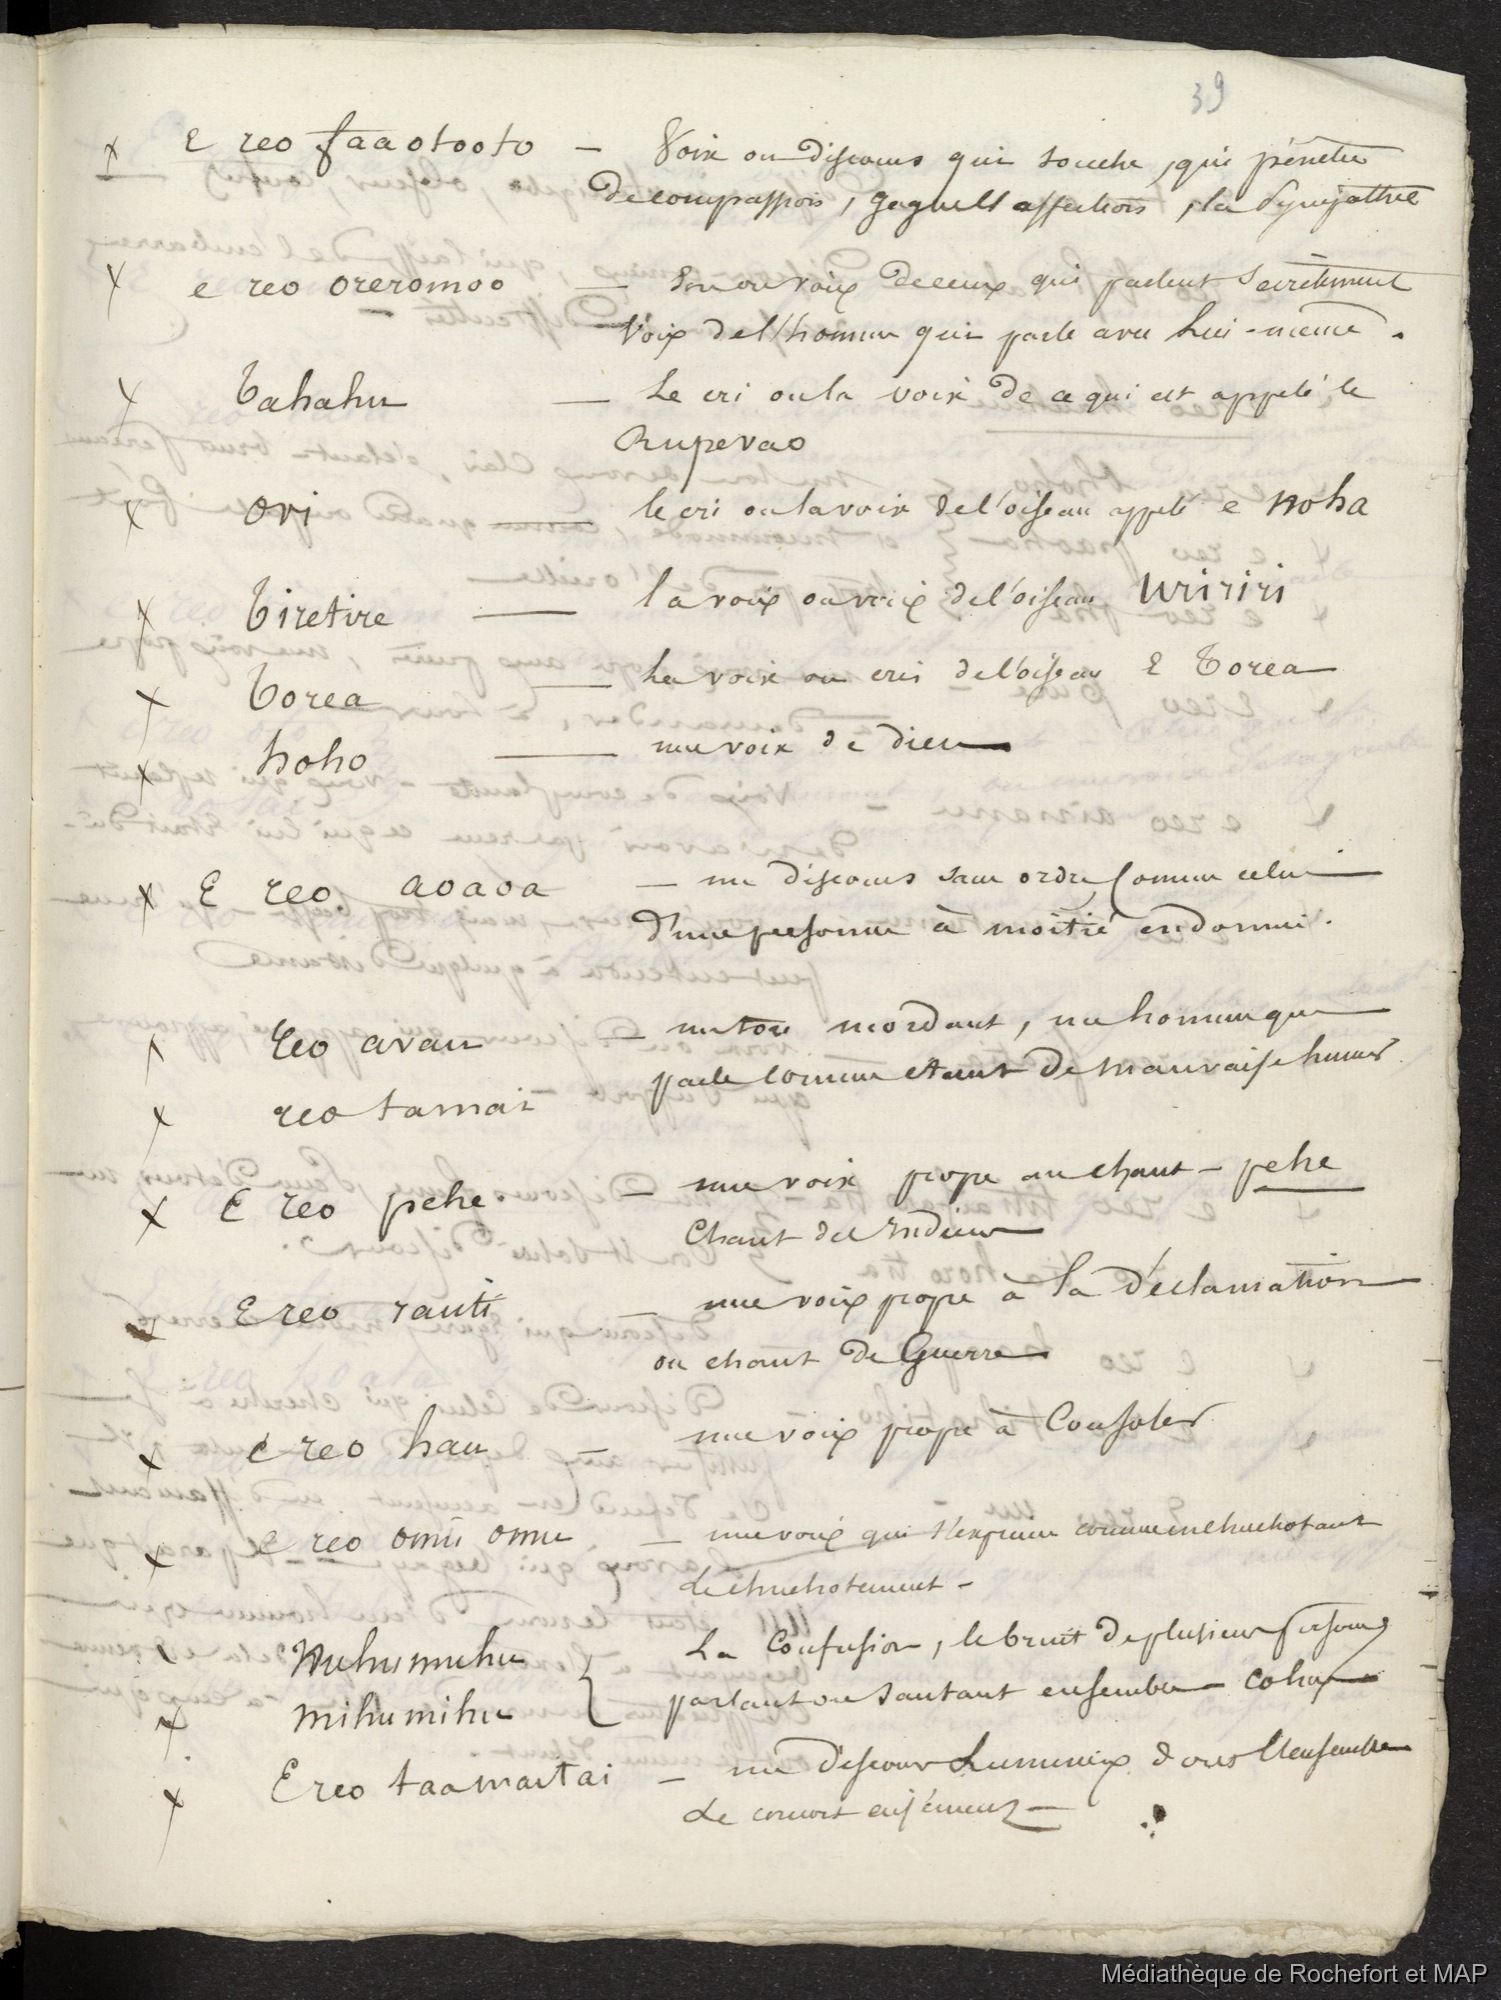 39
x E reo faaotooto — Voix ou discours qui touche, qui pénètre
de compassion, gagne l'affection, la Sympathie
x e reo oreromoo — Son ou voix de ceux qui parlent Secrètement
Voix de l'homme qui parle avec Lui-même.
x Tahahu — Le cri ou la voix de ce qui est appelé le
Rupevao
x Ovi — le cri ou la voix de l'oiseau appelé e Noha
x Tiretire — la voix de l'oiseau Uriiriri
x Torea — La voix ou cris de l'oiseau E Torea
x hoho — une voix de dieu
x E reo aoaoa — un discours sans ordre Comme celui
d'une personne à moitié endormie.
reo avau — un ton mordant, un homme qui
parle comme étant de mauvaise humeur
x reo tamai
x E reo pehe — une voix propre au chant — pehe
Chant des Indiens
x E reo rauti — une voix propre à la déclamation
ou chant de Guerre
x e reo hau — une voix propre à Consoler
x e reo omu omu — une voix qui s'exprime comme en chuchotant
Le chuchotement —
Muhumuhu { La Confusion, le bruit de plusieurs personnes
x Mihumihu parlant ou sautant ensemble — cohu
x E reo taamaitai — un discours Lumineux